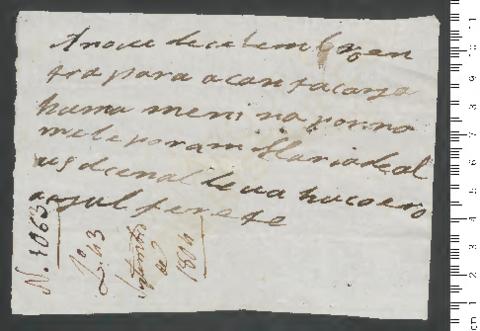 A nove de cetembro en
tra para a santa caza
huma menina por no
me le poram Maria de al
de cinal leva hu coero
azul ferete
N. 1063
L.º 43
Setembro
de
1804